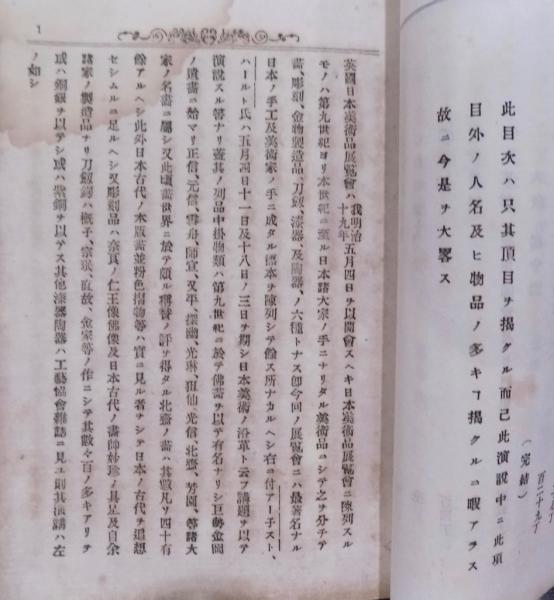 此目次ハ只其項目ヲ揭クル而已此演說中ニ此項
目外ノ人名及ヒ物品ノ多キヿ揭クルニ暇アラス
故ニ今是ヲ大畧ス
(完結)
1
英國日本美術品展覽會ハ我明治十九年五月四日ヲ以開會スヘキ日本美術展覽會ニ陳列スル
モノハ第九世紀ヨリ本世紀ニ至ル日本諸大家ノ手ニナリタル美術品ニシテ之ヲ分チテ
畵、彫刻、金物製造品、刀劔、漆器、及陶器、ノ六種トナス卽今回ノ展覽會ニハ最著名ナル
日本ノ手工及美術家ノ手ニ成タル標本ヲ陳列シテ餘ス所ナカルヘシ右ニ付アー子スト、
ハールト氏ハ五月四日十一日及十八日ノ三日ヲ期シ日本美術ノ沿革ト云フ講題ヲ以テ
演說スル筈ナリ蓋其ノ列品中掛物類ハ第九世紀ニ於テ佛畵ヲ以テ有名ナリシ巨勢金岡
ノ遺畵ニ始マリ正信、元信、雪舟、師宣、又平、探幽、光琳、狙仙、光信、北齋、芳園、等諸大
家ノ名畵ニ屬シ又此頃畵世界ニ於テ頗ル稱賛ノ評ヲ得タル北齋ノ畵ハ其數凡ソ四十有
餘アルヘシ此外日本古代ノ木版畵並粉色摺物等ハ實ニ見ル者ヲシテ日本ノ古代ヲ追想
セシムルニ足ルヘシ又彫刻品ハ奈良ノ仁王像佛像及日本古代ノ畵師妙珍ノ具足及自余
諸家ノ製造品ナリ刀劔鍔ハ概子、宗珉、直故、金家等ノ作ニシテ其數々百ノ多キアリテ
或ハ鋼銀ヲ以テシ或ハ紫銅ヲ以テス其他漆器陶器ハ工藝協會雜誌ニ見ユ則其演講ハ左
ノ如シ